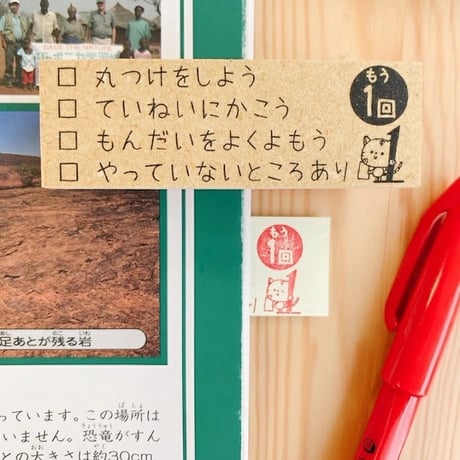 SAVE THE NATURE
□ 丸つけをしよう
□ ていねいにかこう
□ もんだいをよくよもう
□ やっていないところあり
もう
1回
1
もう
1回
1
足あとが残る岩
あし のこ いわ
っています。この場所は
ばしょ
いません。恐竜がすん
きょうりゅう
との大きさは約30cm
おお やく